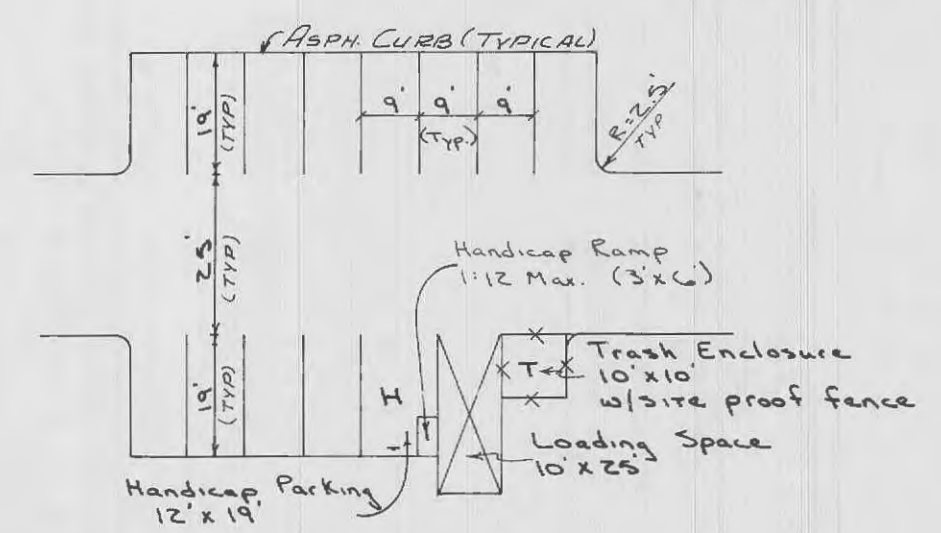 ASPH. CURB (TYPICAL)
19'
(TYP)
9'
9'
9'
(TYP.)
R=2.5'
TYP
25'
(TYP)
Handicap Ramp
1:12 Max. (3'x6')
19'
(TYP)
H
T
Trash Enclosure
10'x10'
w/site proof fence
Loading Space
10'x25'
Handicap Parking
12'x19'